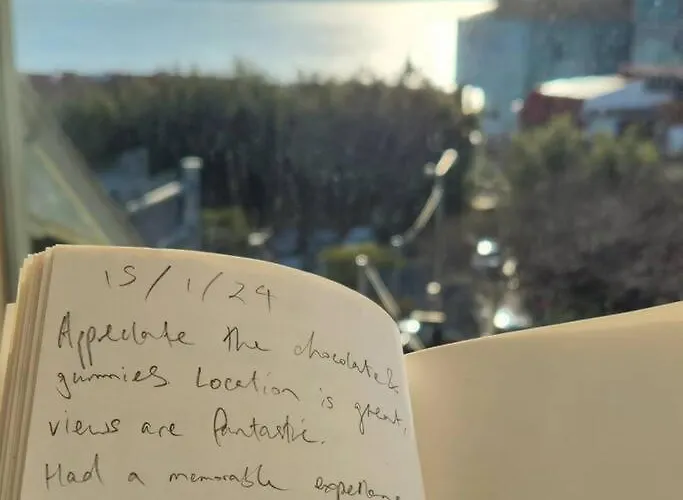 15/1/24
Appreciate the chocolate &
gummies. Location is great,
views are fantastic.
Had a memorable experience